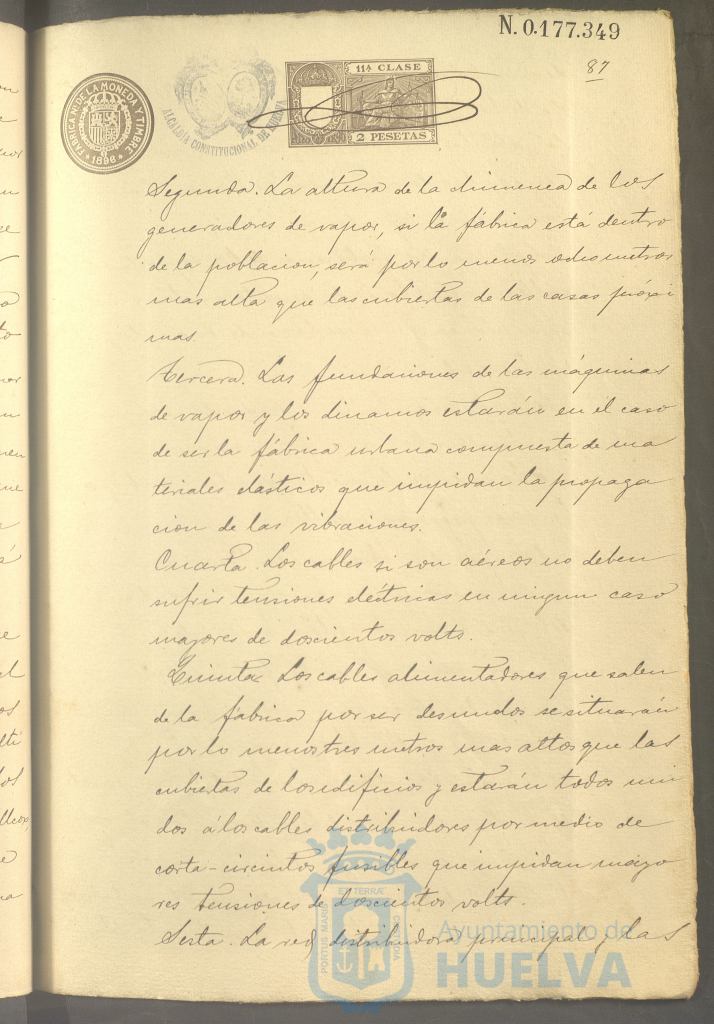 N. 0.177.349
87
FABRICA Nl. DE LA MONEDA Y TIMBRE
* 1896 *
ALCALDIA CONSTITUCIONAL DE HUELVA
11ª CLASE
2 PESETAS
Segunda. La altura de la chimenea de los
generadores de vapor, si la fábrica está dentro
de la poblacion, será por lo menos ocho metros
mas alta que las cubiertas de las casas próxi
mas.
Tercera. Las fundaciones de las máquinas
de vapor y los dinamos estarán en el caso
de ser la fábrica urbana compuesta de ma
teriales elásticos que impidan la propaga
cion de las vibraciones.
Cuarta. Los cables si son aéreos no deben
sufrir tensiones eléctricas en ningun caso
mayores de doscientos volts.
Quinta. Los cables alimentadores que salen
de la fábrica por ser desnudos se situarán
por lo menos tres metros mas altos que las
cubiertas de los edificios y estarán todos uni
dos á los cables distribuidores por medio de
corta-circuitos fusibles que impidan mayo
res tensiones de doscientos volts.
Sesta. La red distribuidora principal y las
PORTUS MARIS
ET TERRÆ
CUSTODIA
Ayuntamiento de
HUELVA